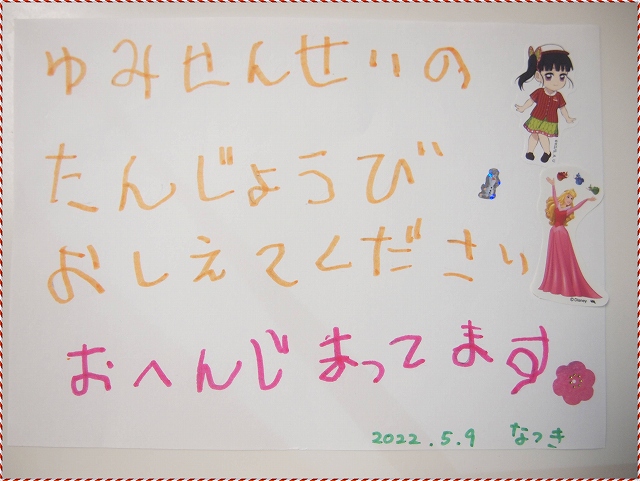 ゆみせんせいの
たんじょうび
おしえてください
おへんじまってます
2022.5.9 なつき
©Disney